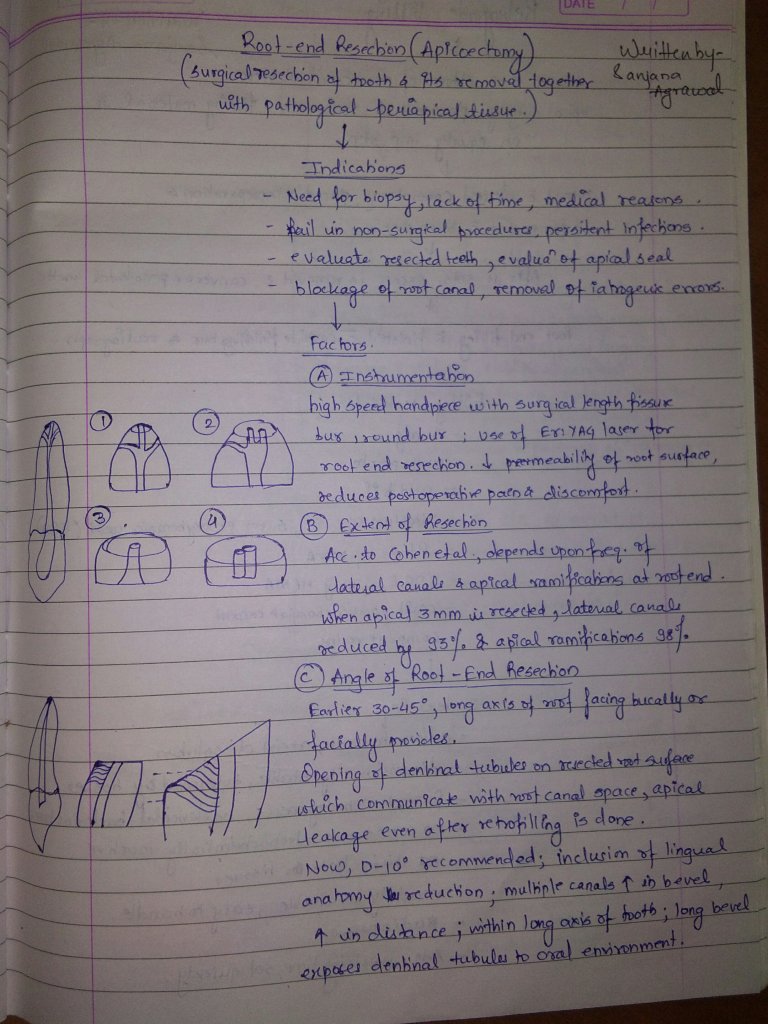 DATE / /
Root-end Resection (Apicoectomy)
Written by-
Sanjana
Agrawal
(surgical resection of tooth & its removal together
with pathological periapical tissue.)
↓
Indications
- Need for biopsy, lack of time, medical reasons.
- fail in non-surgical procedures, persitent infections.
- evaluate resected teeth, evalua^n of apical seal
- blockage of root canal, removal of iatrogenic errors.
↓
Factors.
(A) Instrumentation
high speed handpiece with surgical length fissure
bur, round bur ; use of Er:YAG laser for
root end resection. ↓ permeability of root surface,
reduces postoperative pain & discomfort.
1
2
3
4
(B) Extent of Resection
Acc. to Cohen et al., depends upon freq. of
lateral canals & apical ramifications at root end.
when apical 3mm is resected, lateral canals
reduced by 93% & apical ramifications 98%
(C) Angle of Root-End Resection
Earlier 30-45°, long axis of root facing bucally or
facially provides.
Opening of dentinal tubules on resected root surface
which communicate with root canal space, apical
leakage even after retrofilling is done.
Now, 0-10° recommended; inclusion of lingual
anatomy reduction ; multiple canals ↑ in bevel,
↑ in distance ; within long axis of tooth ; long bevel
exposes dentinal tubules to oral environment.